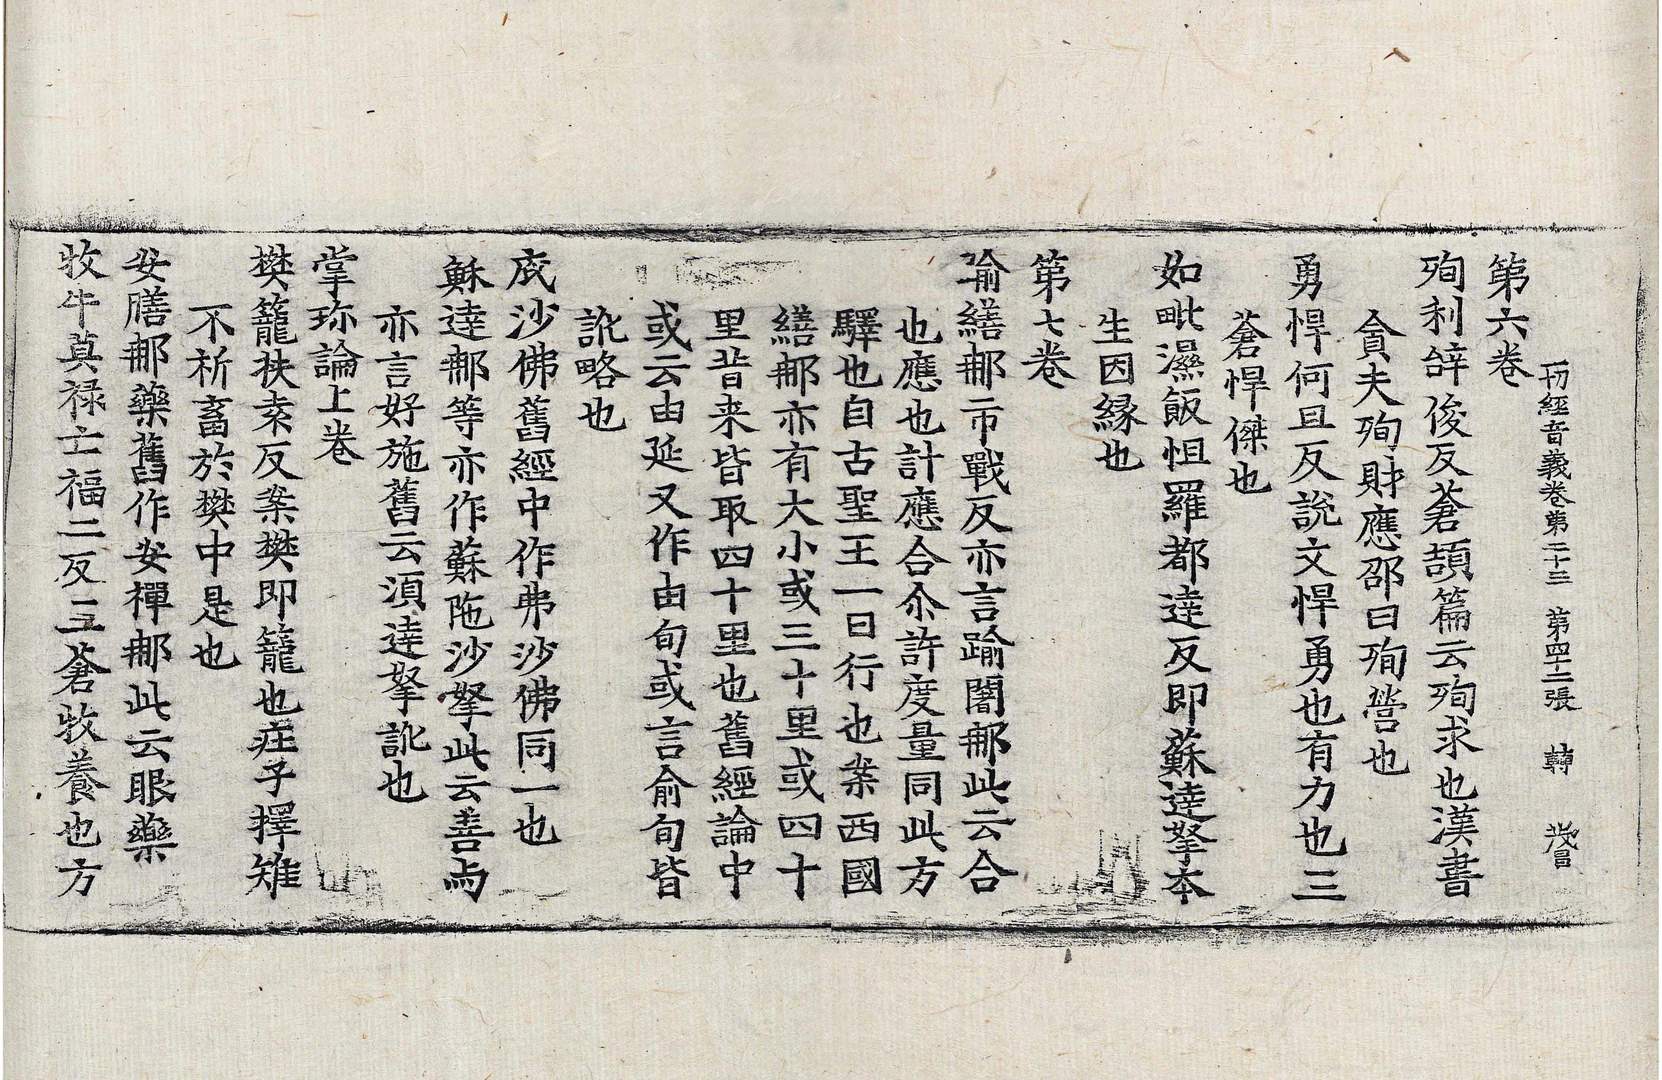 一切經音義卷第二十三 第四十二張 轉
第六卷
殉利辞俊反蒼頡篇云殉求也漢書
貪夫殉財應邵曰殉營也
勇悍何旦反說文悍勇也有力也三
蒼悍傑也
如毗濕飯怛羅都達反即蘇達拏本
生因緣也
第七卷
踰繕那市戰反亦言踰闍那此云合
也應也計應合尒許度量同此方
驛也自古聖王一日行也案西國
繕那亦有大小或三十里或四十
里昔来皆取四十里也舊經論中
或云由延又作由旬或言俞旬皆
訛略也
底沙佛舊經中作弗沙佛同一也
蘇達那等亦作蘇陁沙拏此云善与
亦言好施舊云湏達拏訛也
掌珎論上卷
樊籠扶袁反案樊即籠也庄子擇雉
不祈畜於樊中是也
安膳那藥舊作安禪那此云眼藥
牧牛莫禄亡福二反三蒼牧養也方